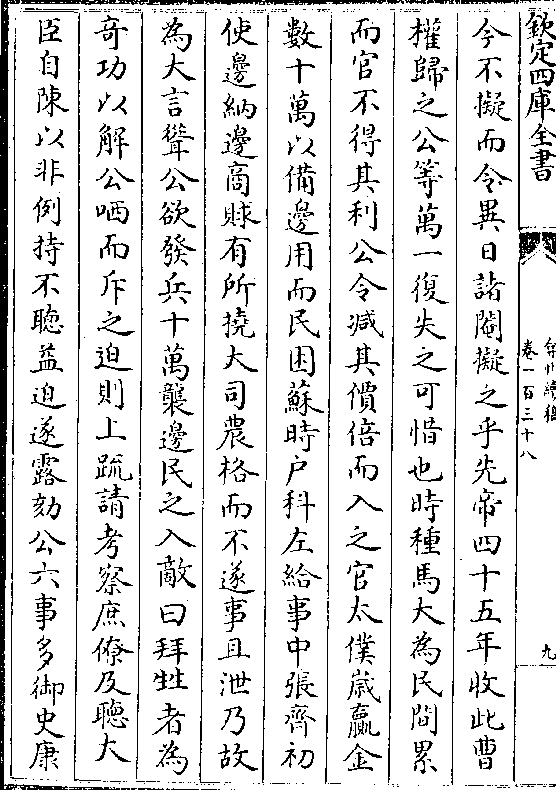 欽定四庫全書
弇州續稿
卷一百三十八
九
今不擬而令異日諸閹擬之乎先帝四十五年收此曹
權歸之公等萬一復失之可惜也時種馬大為民間累
而官不得其利公令減其價倍而入之官太僕歲贏金
數十萬以備邊用而民困蘇時户科左給事中張齊初
使邊納邊商賕有所撓大司農格而不遂事且泄乃故
為大言聳公欲發兵十萬襲邊民之入敵曰拜甡者為
竒功以解公哂而斥之迫則上疏請考察庶僚及聽大
臣自陳以非例持不聽益迫遂露劾公六事多御史康